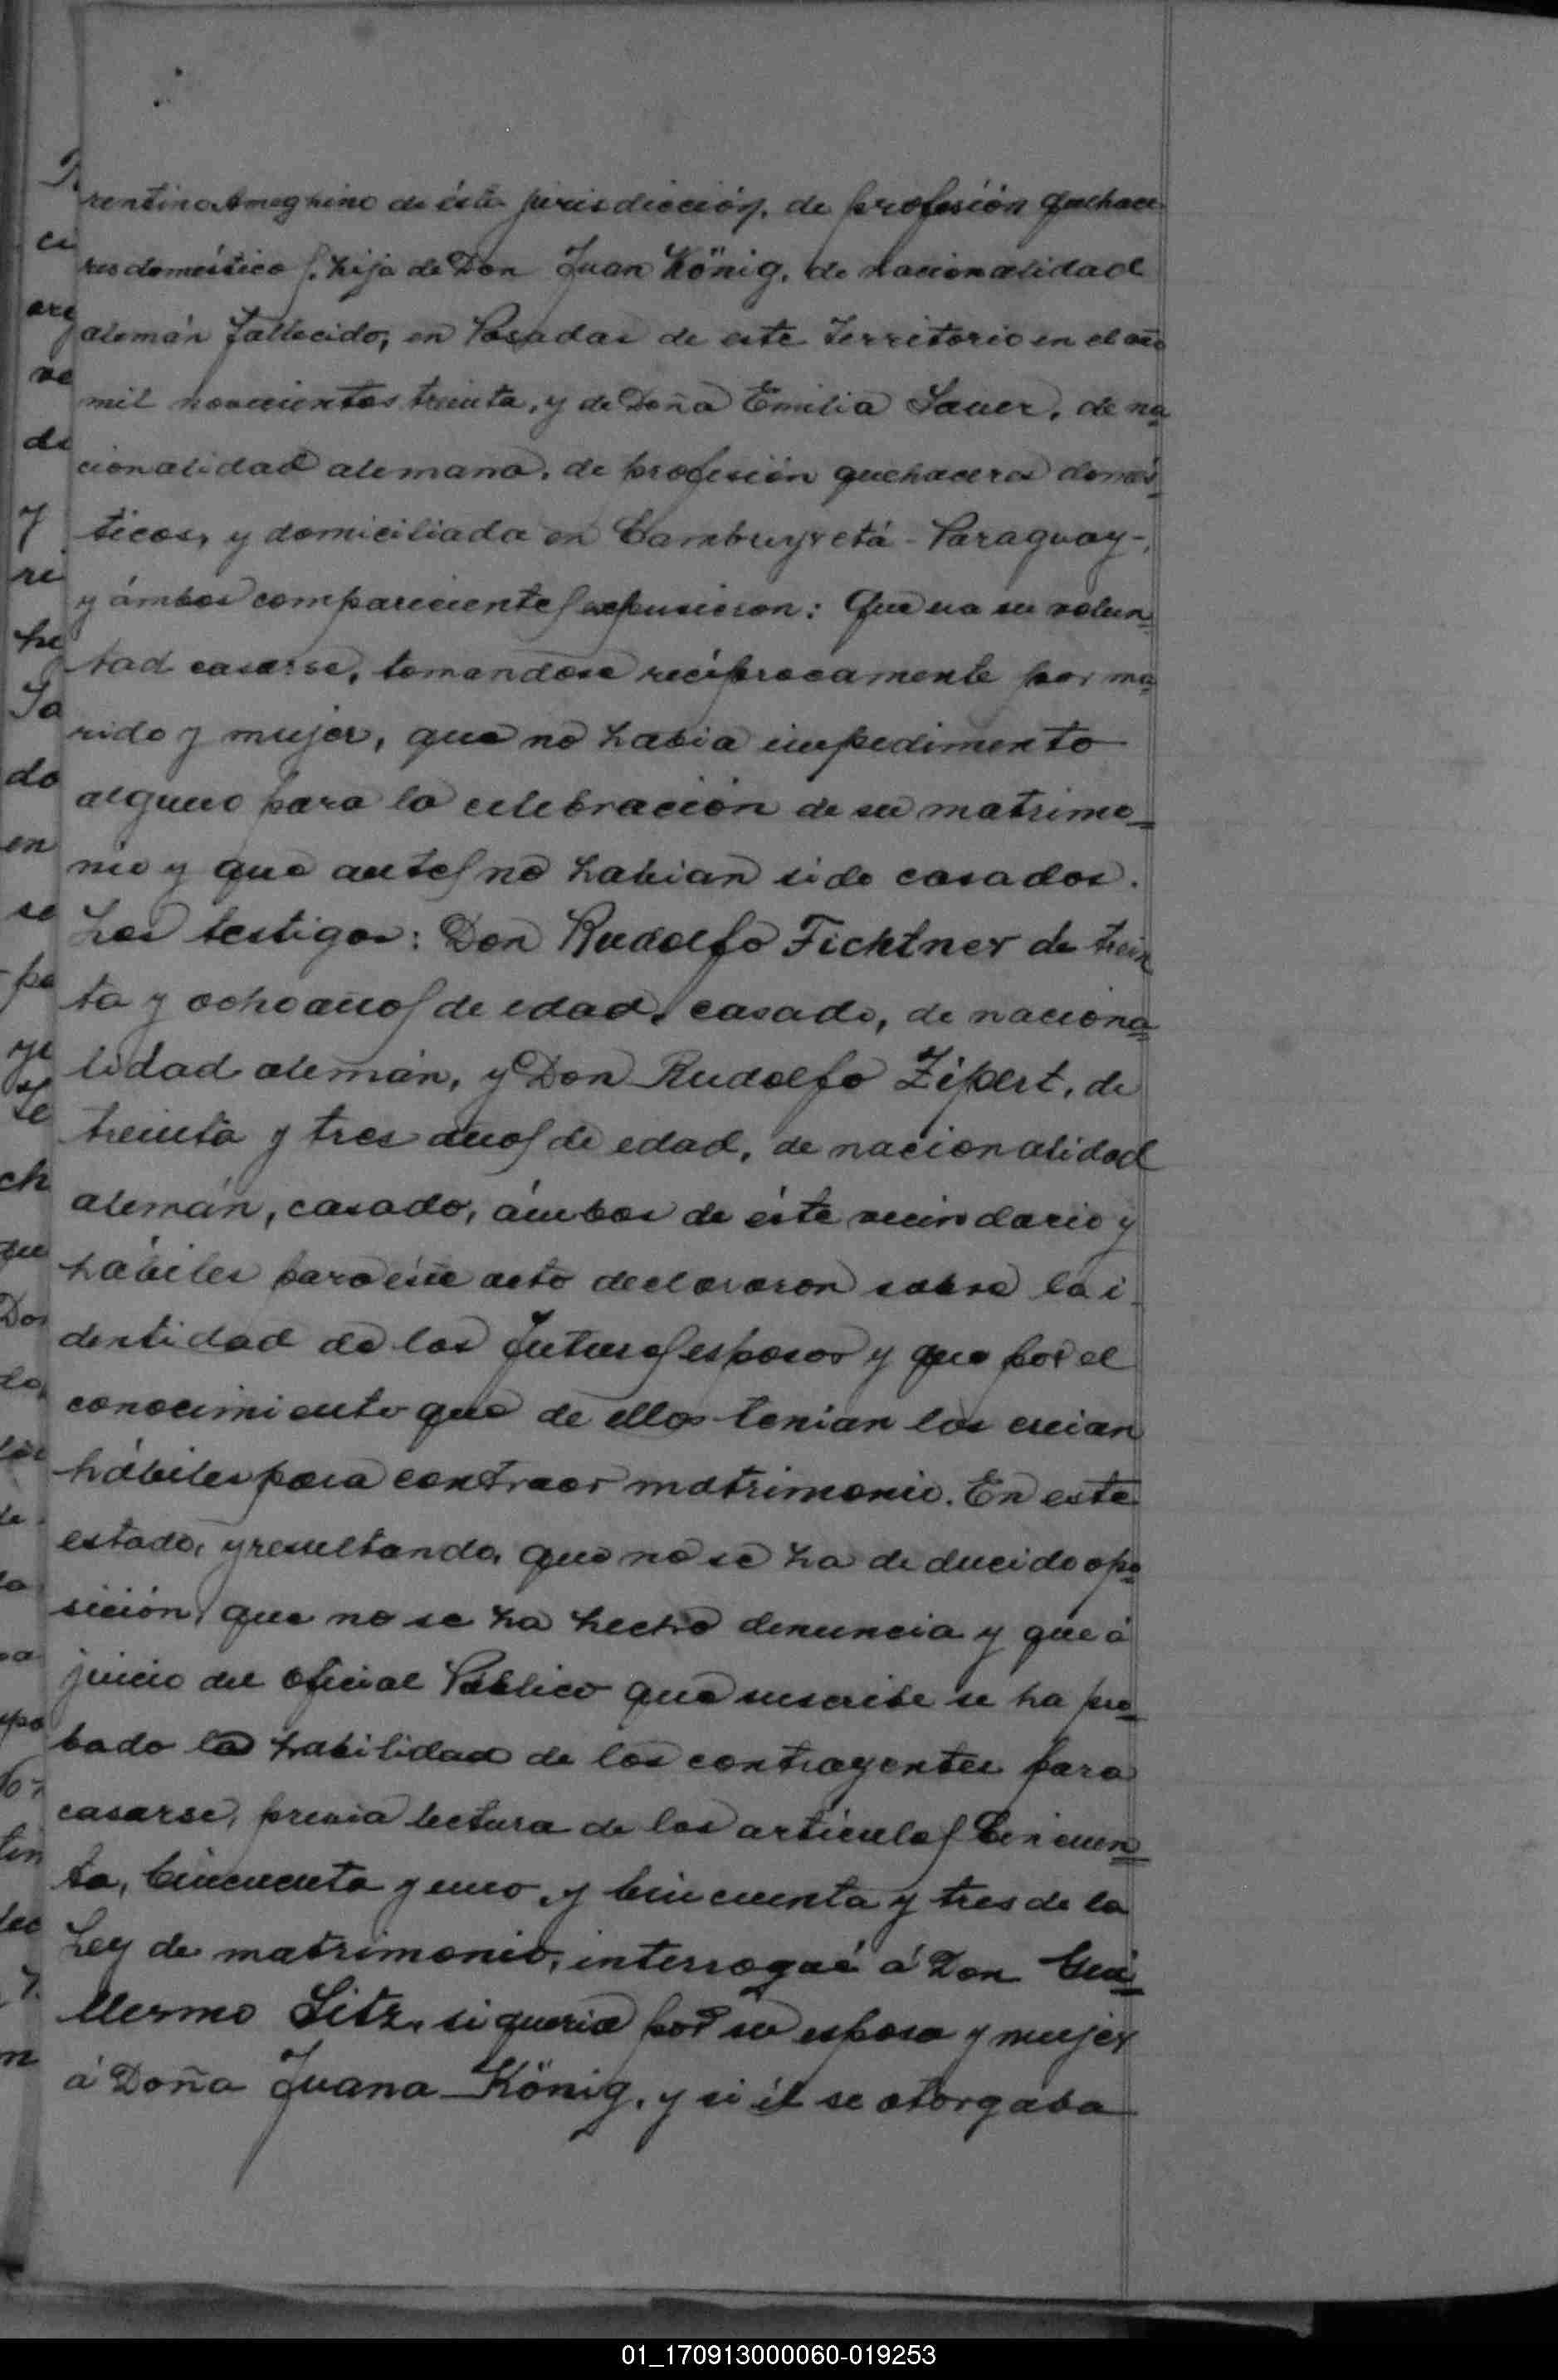 rentino Ameghino de ésta jurisdicción, de profesión quehace
res domésticos, hija de Don Juan König, de nacionalidad
alemán fallecido, en Posadas de este Territorio en el año
mil novecientos treinta, y de Doña Emilia Sauer, de na
cionalidad alemana, de profesión quehaceres domés
ticos, y domiciliada en Cambuyretá - Paraguay -,
y ámbos comparecientes expusieron: Que era su volun
tad casarse, tomandose recíprocamente por ma
rido y mujer, que no habia impedimento
alguno para la celebración de su matrimo
nio y que antes no habian sido casados.
Los testigos: Don Rudolfo Fichtner de trein
ta y ocho años de edad, casado, de naciona
lidad alemán, y Don Rudolfo Zipert, de
treinta y tres años de edad, de nacionalidad
alemán, casado, ámbos de éste vecindario y
hábiles para éste acto declararon sobre la i
dentidad de los futuros esposos y que por el
conocimiento que de ellos tenian los creian
hábiles para contraer matrimonio. En este
estado, y resultando, que no se ha deducido opo
sición, que no se ha hecho denuncia y que á
juicio del Oficial Público que suscribe se ha pro
bado la habilidad de los contrayentes para
casarse, previa lectura de los artículos Cincuen
ta, Cincuenta y uno, y Cincuenta y tres de la
Ley de matrimonio, interrogué á Don Gui
llermo Sitz, si queria por su esposa y mujer
á Doña Juana König, y si él se otorgaba
01_170913000060-019253